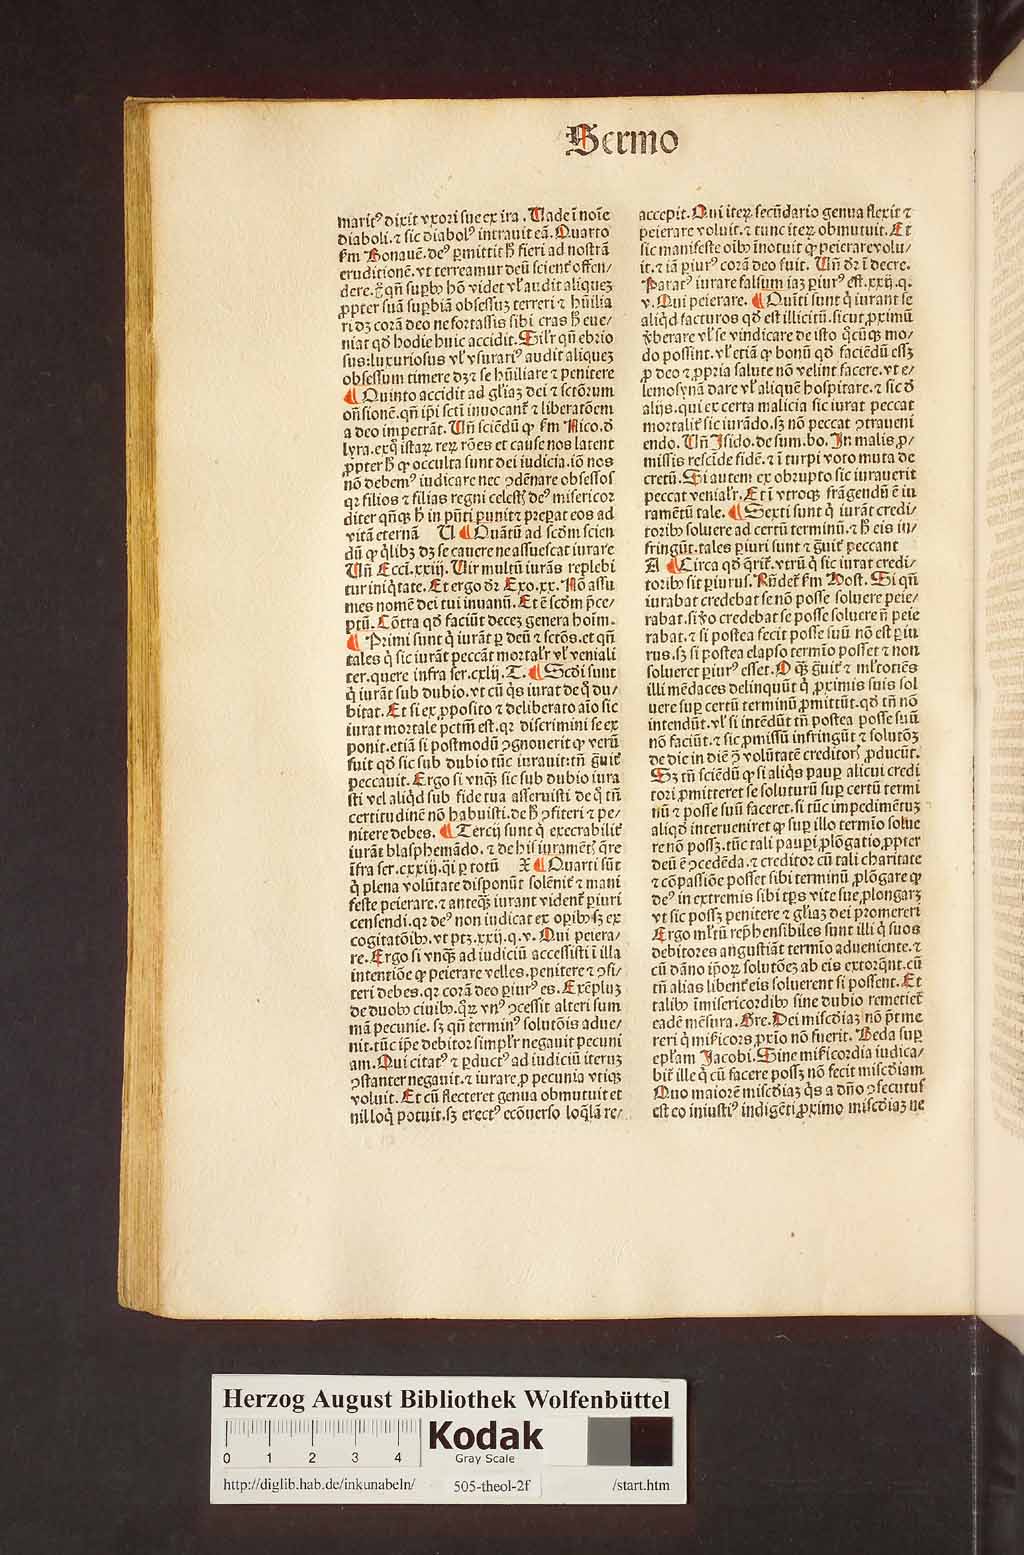 Sermo
maritꝰ dixit vxori sue ex ira . Uade ī noīe
diaboli. ⁊ sic diabolꝰ intrauit eā. Quarto
ẜm Bonauē. deꝰ ꝑmittit h̄ fieri ad nostrā
eruditionē. vt terreamur deū scient̄ offen/
dere. qꝛ qn̄ supb̄ hō videt vl̓ audit aliqueꝫ
ꝓpter suā supbiā obsessuꝫ terreri ⁊ hūilia
ri dꝫ corā deo ne fortassis sibi cras h̄ eue/
niat qđ hodie huic accidit. Silr̄ qn̄ ebrio
sus: luxuriosus vl̓ vsurariꝰ audit aliqueꝫ
obsessum timere dꝫ ⁊ se hūiliare ⁊ penitere
¶ Quinto accidit ad gl̓iaꝫ dei ⁊ sctōrum
on̄sionē. qn̄ ip̄i scti inuocant̄ ⁊ liberatōem
a deo impetrāt. Un̄ sciēdū ꝙ ẜm Nico. đ
lyra. exq̇ istaꝝ reꝝ rōes et cause nos latent
ꝓpter h̄ ꝙ occulta sunt dei iudicia. iō nos
nō debemꝰ iudicare nec ꝯdēnare obsessos
qꝛ filios ⁊ filias regni celest̄ deꝰ misericor
diter qn̄qꝫ h̄ in pn̄ti punit ⁊ prep̄at eos ad
vitā eternā U ¶ Quātū ad scđm scien
dū ꝙ q̇libꝫ dꝫ se cauere ne assuescat iurare
Un̄ Eccī. xxiij. Uir multū iurās replebi
tur iniq̇tate. Et ergo dr̄ Exo. xx. Nō assu
mes nomē dei tui inuanū. Et ē scđm p̄ce/
ptū. Cōtra qđ faciūt deceꝫ genera hoīm.
¶ Primi sunt q̇ iurāt ꝑ deū ⁊ sctōs. et qn̄
tales q̇ sic iurāt peccāt mortal̓r vl̓ veniali
ter. quere infra ser. cxlij. T. ¶ Scđi sunt
q̇ iurāt sub dubio. vt cū q̇s iurat de q̇ du/
bitat. Et si ex ꝓposito ⁊ deliberato aīo sic
iurat mortale pctm̄ est. qꝛ discrimini se ex
ponit. etiā si postmodū ꝯgnouerit ꝙ verū
fuit qđ sic sub dubio tūc iurauit: tn̄ gͣuit̄
peccauit. Ergo si vnqͣꝫ sic sub dubio iura
sti vel aliqđ sub fide tua asseruisti de q̇ tn̄
certitudinē nō habuisti. de h̄ ꝯfiteri ⁊ pe/
nitere debes. ¶ Tercij sunt q̇ execrabilit̄
iurāt blasphemādo. ⁊ de his iuramēt̄ q̄re
īfra ser. cxxiij. q̄i ꝑ totū X ¶ Quarti sūt
q̇ plena volūtate disponūt solēnit̄ ⁊ mani
feste peierare. ⁊ anteqͣꝫ iurant vident̄ ꝑiuri
censendi. qꝛ deꝰ non iudicat ex opibꝰ sꝫ ex
cogitatōibꝰ. vt ptꝫ. xxij. q. v. Qui peiera/
re. Ergo si vnqͣꝫ ad iudiciū accessisti ī illa
intentiōe ꝙ peierare velles. penitere ⁊ ꝯfi/
teri debes. qꝛ corā deo ꝑiurꝰ es. Exēpluꝫ
de duobꝰ ciuibꝰ. qͦꝝ vnꝰ ꝯcessit alteri sum
mā pecunie. sꝫ qn̄ terminꝰ solutōis adue/
nit. tūc ip̄e debitor simpl̓r negauit pecuni
am. Qui citatꝰ ⁊ ꝑductꝰ ad iudiciū iteruꝫ
ꝯstanter negauit. ⁊ iurare ꝓ pecunia vtiqꝫ
voluit. Et cū flecteret genua obmutuit et
nil loq̇ potuit. sꝫ erectꝰ ecōuerso loq̄lā re/
accepit. Qui iteꝝ secūdario genua flexit ⁊
peierare voluit. ⁊ tunc iteꝝ obmutuit. Et
sic manifeste oībꝰ īnotuit ꝙ peierare volu/
it. ⁊ iā ꝑiurꝰ corā deo fuit. Un̄ dr̄ ī decre.
Paratꝰ iurare falsum iaꝫ ꝑiurꝰ est. xxij. q.
v. Qui peierare. ¶ Quīti sunt q̇ iurant se
aliqđ facturos qđ est illicitū. sicut ꝓximū
v̓berare vl̓ se vindicare de isto q̇cūqꝫ mo/
do possint. vl̓ etiā ꝙ bonū qđ faciēdū essꝫ
ꝓ deo ⁊ ꝓpria salute nō velint facere. vt e/
lemosynā dare vl̓ aliquē hospitare. ⁊ sic đ
alijs. qui ex certa malicia sic iurat peccat
mortalit̄ sic iurādo. sꝫ nō peccat ꝯtraueni
endo. Un̄ Isido. de sum. bo. In malis ꝓ/
missis rescīde fidē. ⁊ ī turpi voto muta de
cretū. Si autem ex obrupto sic iurauerit
peccat venial̓r. Et ī vtroqꝫ frāgendū ē iu
ramētū tale. ¶ Sexti sunt q̇ iurāt credi/
toribꝰ soluere ad certū terminū. ⁊ h̄ eis in/
fringūt. tales ꝑiuri sunt ⁊ gͣuit̄ peccant
A ¶ Circa qđ q̄rit̄. vtrū q̇ sic iurat credi/
toribꝰ sit ꝑiurus. Rn̄det̄ ẜm Host. Si qn̄
iurabat credebat se nō posse soluere peie/
rabat. si v̓o credebat se posse soluere n̄ peie
rabat. ⁊ si postea fecit posse suū nō est ꝑiu
rus. sꝫ si postea elapso termīo posset ⁊ non
solueret ꝑiurꝰ esset. O qͣꝫ gͣuit̄ ⁊ ml̓totiēs
illi mēdaces delinquūt q̇ ꝓximis suis sol
uere sup certū terminū ꝓmittūt. qđ tn̄ nō
intendūt. vl̓ si intēdūt tn̄ postea posse suū
nō faciūt. ⁊ sic ꝓmissū infringūt ⁊ solutōꝫ
de die in diē ꝯͣ volūtatē creditoꝝ ꝓducūt.
Sꝫ tn̄ sciēdū ꝙ si aliq̇s paup alicui credi
tori ꝓmitteret se soluturū sup certū termi
nū ⁊ posse suū faceret. si tūc impedimētuꝫ
aliqđ interueniret ꝙ sup illo termīo solue
re nō possꝫ. tūc tali paupi ꝓlōgatio ꝓpter
deū ē ꝯcedēda. ⁊ creditor cū tali charitate
⁊ cōpassiōe posset sibi terminū ꝓlōgare ꝙ
deꝰ in extremis sibi tp̄s vite sue ꝓlongaꝝ
vt sic possꝫ penitere ⁊ gl̓iaꝫ dei promereri
Ergo ml̓tū rep̄hensibiles sunt illi q̇ suos
debitores angustiāt termīo adueniente. ⁊
cū dāno ip̄oꝝ solutōeꝫ ab eis extorq̄nt. cū
tn̄ alias libent̄ eis soluerent si possent. Et
talibꝰ īmisericordibꝰ sine dubio remetiet̄
eadē mēsura. Gre. Dei miscđiaꝫ nō p̄t me
reri q̇ mīficors ꝓxīo nō fuerit. Beda sup
epl̓am Jacobi. Sine mīficordia iudica/
bit̄ ille q̇ cū facere possꝫ nō fecit miscđiam
Quo maiorē miscđiaꝫ q̇s a dn̄o ꝯsecutuſ
est eo iniustiꝰ indigēti ꝓximo miscđiaꝫ ne
Herzog August Bibliothek Wolfenbüttel
0 1 2 3 4
Kodak
Gray Scale
http://diglib.hab.de/inkunabeln/ 505-theol-2f /start.htm